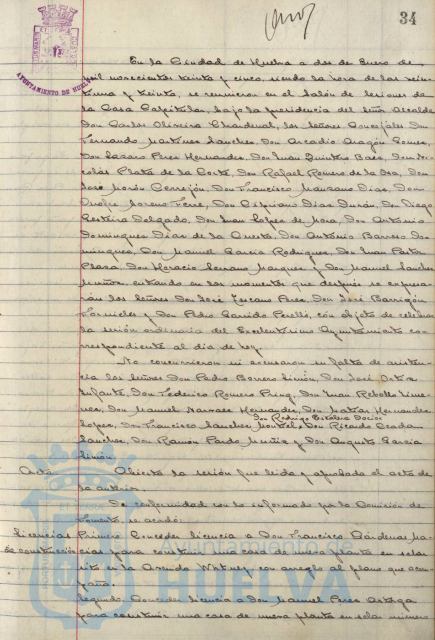 34
AYUNTAMIENTO DE HUELVA
En la Ciudad de Huelva a dos de Enero de
mil novecientos treinta y cinco, siendo la hora de las vein-
tiuna y treinta, se reunieron en el salón de sesiones de
la Casa Capitular, bajo la presidencia del Señor Alcalde
Don Carlos Oliveira Chardenal, los Señores Concejales Don
Fernando Martinez Sanchez, Don Arcadio Aragón Gomez,
Don Lazaro Perez Hernandez, Don Juan Quintero Baez, Don Ni-
colás Plata de la Corte, Don Rafael Romero de la Osa, Don
José Morón Cerrejón, Don Francisco Manzano Dias, Don
Onofre Moreno, Don Cipriano Dias Durán, Don Diego
Delgado, Don Juan Lopez de Mora, Don Antonio
Dominguez Dias de la Cuesta, Don Antonio Barroso Do-
minguez, Don Manuel Garcia Rodriguez, Don Juan Pastor
Plaza, Don Horacio Serrano Marquez y Don Manuel Sanchez
Muñoz, entrando en los momentos que después se expresa-
rán los Señores Don José Toscano Perez, Don José Barrigón
Fornieles y Don Pedro Garrido Perelló, con objeto de celebrar
la sesión ordinaria del Excelentisimo Ayuntamiento co-
rrespondiente al dia de hoy.
No concurrieron ni excusaron su falta de asisten-
cia los Señores Don Pedro Borrero Limón, Don José
Infante, Don Federico Romero, Don Juan Rebollo Jime-
nez, Don Manuel Narvaez Hernandez, Don Matias Hernandez
Don Rodrigo
Lopez, Don Francisco Sanchez, Don Ricardo
Sanchez, Don Ramón Pardo Muñiz y Don Augusto Garcia
Limón.
Acta. Abierta la sesión fue leida y aprobada el acta de
la anterior.
De conformidad con lo informado por la Comisión de
Fomento, se acordó:
Licencias Primero. Conceder licencia a Don Francisco Cárdenas Ma-
de construcción cias para construir una casa de nueva planta en solar
sito en la Avenida, con arreglo al plano que acom-
paña.
Segundo. Conceder licencia a Don Manuel Perez Ortega
para construir una casa de nueva planta en solar número
Ayuntamiento de
HUELVA